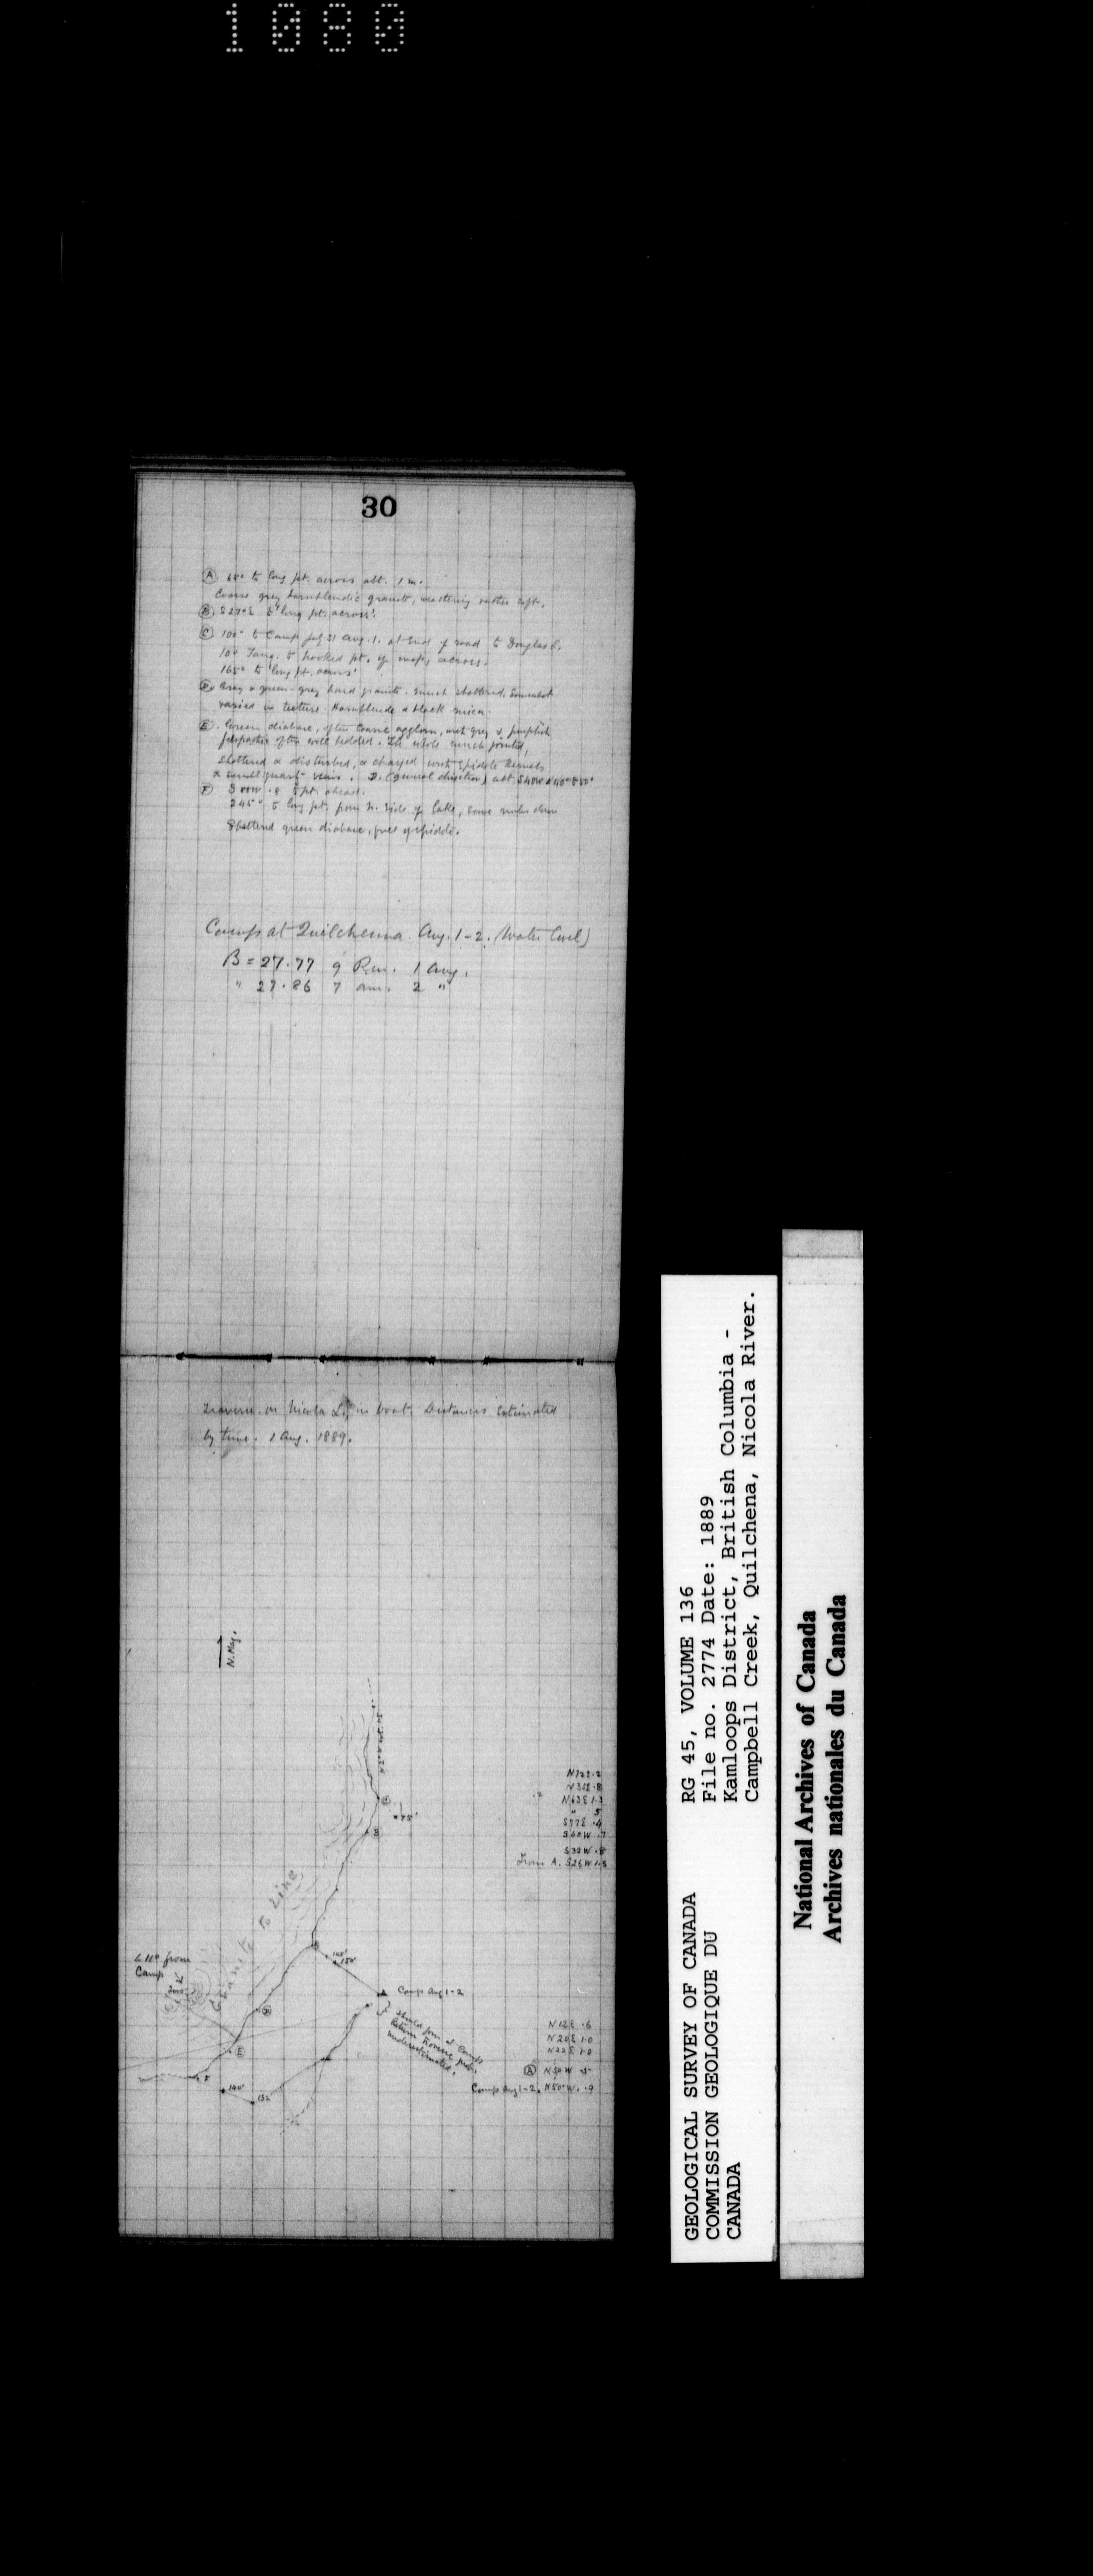 1080
30
(A) 68° to long pt. across abt. 1 m.
Coarse grey hornblendic granite, weathering rather soft.
(B) S27°E to "long pt. across".
(C) 100° to Camp July 31 Aug. 1. at end of road to Douglas L.
10° Tang. to hooked pt. of map, across.
165° to "long pt. across"
(D) Grey & green-grey hard granite. much shattered. Somewhat
varied in texture. Hornblende & black mica.
(E). Green diabase, often coarse agglom, with grey & purplish
felspathic often well bedded. The whole much jointed,
shattered & disturbed, & charged with epidote
& small quartz veins. D. (general direction) abt S40W
(F) .8 to pt. ahead.
245° to long pt. from N. side of lake, some miles down
Shattered green diabase, full of epidote.
Camp at Quilchenna Aug. 1-2. (Water level)
B = 27.77 9 P.m. 1 Aug.
" 27.86 7 am. 2 "
Traverse on Nicola L. in boat. Distances estimated
by time. 1 Aug. 1889.
N. Mag.
N12E.2
N31E.8
N63E 1.3
" 5
S77E .4
S60W .7
S32W .8
From A. S26W 1.3
75'
B
Granite to Line
L 11° from
Camp
145'
150'
Camp Aug 1-2
D
Should join at Camp
Return traverse prob.
underestimated.
E
F
140'
132'
N12E .6
N20E 1.0
N22E 1.0
(A) N50W .5
Camp Aug 1-2. N50°W. .9
GEOLOGICAL SURVEY OF CANADA
COMMISSION GEOLOGIQUE DU
CANADA
RG 45, VOLUME 136
File no. 2774 Date: 1889
Kamloops District, British Columbia -
Campbell Creek, Quilchena, Nicola River.
National Archives of Canada
Archives nationales du Canada